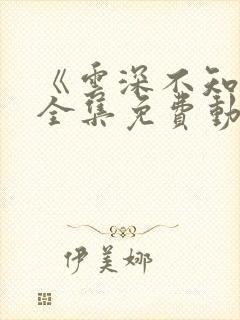 《雲深不知
全集免費動
伊美娜